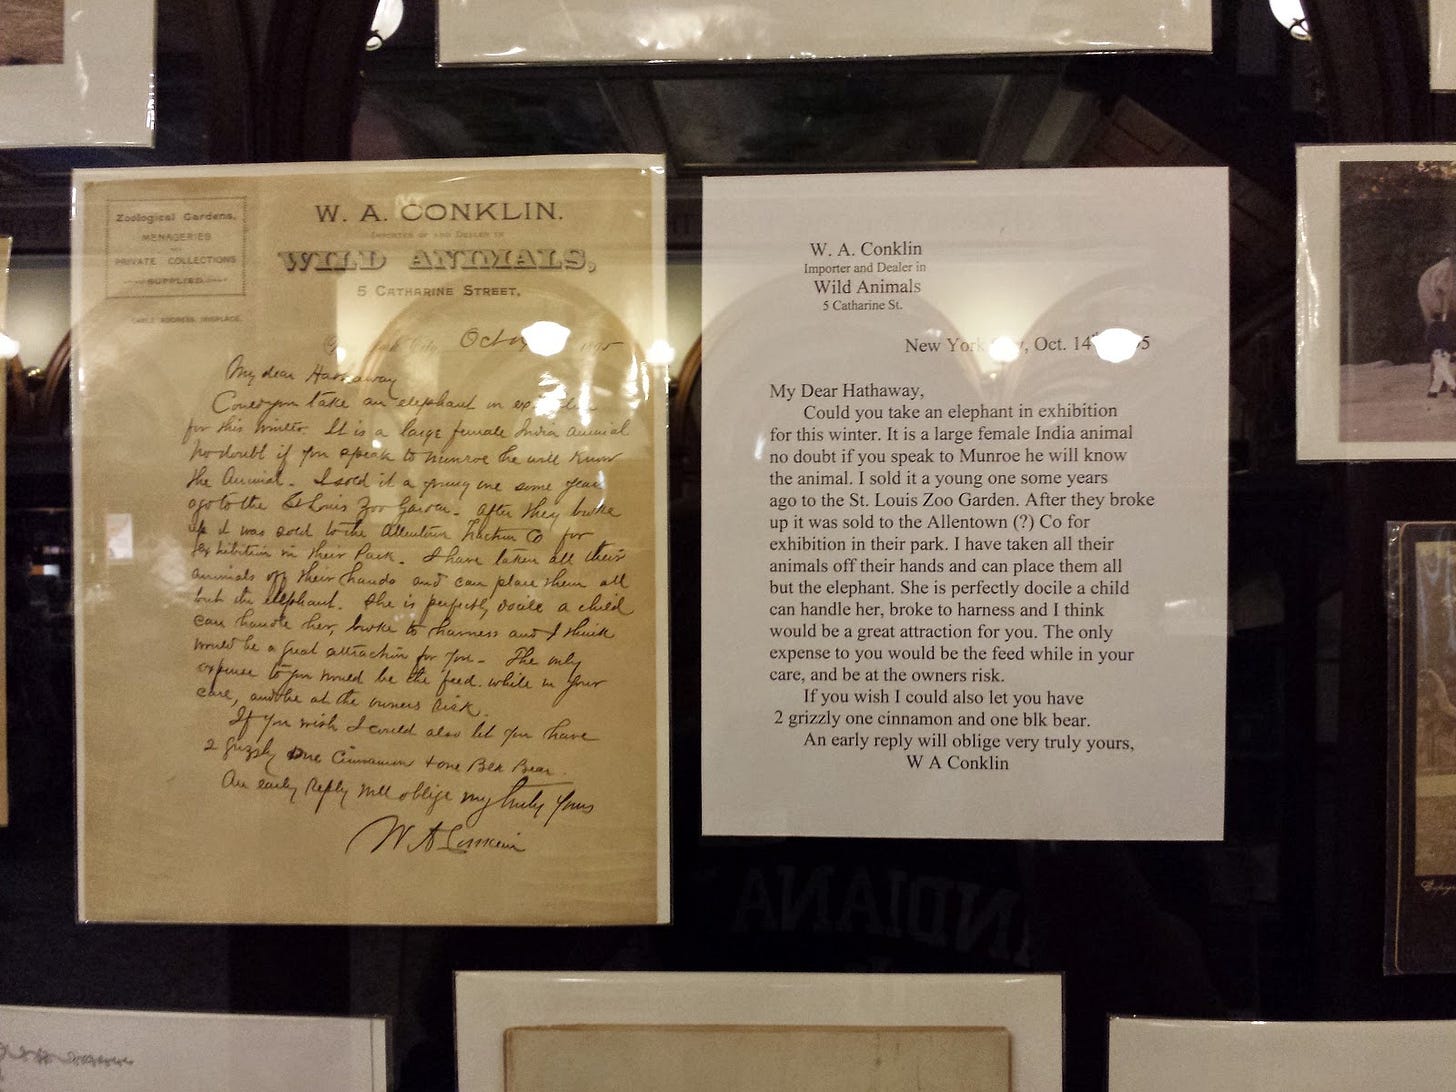 Zoological Gardens,
MENAGERIES
AND
PRIVATE COLLECTIONS
SUPPLIED
CABLE ADDRESS,
W. A. CONKLIN.
IMPORTER OF AND DEALER IN
WILD ANIMALS,
5 CATHARINE STREET,
City, Oct
My dear Hathaway
Could you take an elephant in
for this winter. It is a large female India animal
no doubt if you speak to Munroe he will know
the Animal. I sold it a young one some years
ago to the St Louis Zoo Garden. After they broke
up it was sold to the Allentown Traction Co for
exhibition in their Park. I have taken all their
animals off their hands and can place them all
but the elephant. She is perfectly docile a child
can handle her, broke to harness and I think
would be a great attraction for you. The only
expense to you would be the feed while in your
care, and be at the owners risk.
If you wish I could also let you have
2 grizzly one Cinnamon + one Blk Bear.
An early reply will oblige very truly yours
W A Conklin
W. A. Conklin
Importer and Dealer in
Wild Animals
5 Catharine St.
New York, Oct. 14th 5
My Dear Hathaway,
Could you take an elephant in exhibition
for this winter. It is a large female India animal
no doubt if you speak to Munroe he will know
the animal. I sold it a young one some years
ago to the St. Louis Zoo Garden. After they broke
up it was sold to the Allentown (?) Co for
exhibition in their park. I have taken all their
animals off their hands and can place them all
but the elephant. She is perfectly docile a child
can handle her, broke to harness and I think
would be a great attraction for you. The only
expense to you would be the feed while in your
care, and be at the owners risk.
If you wish I could also let you have
2 grizzly one cinnamon and one blk bear.
An early reply will oblige very truly yours,
W A Conklin
INDIANA